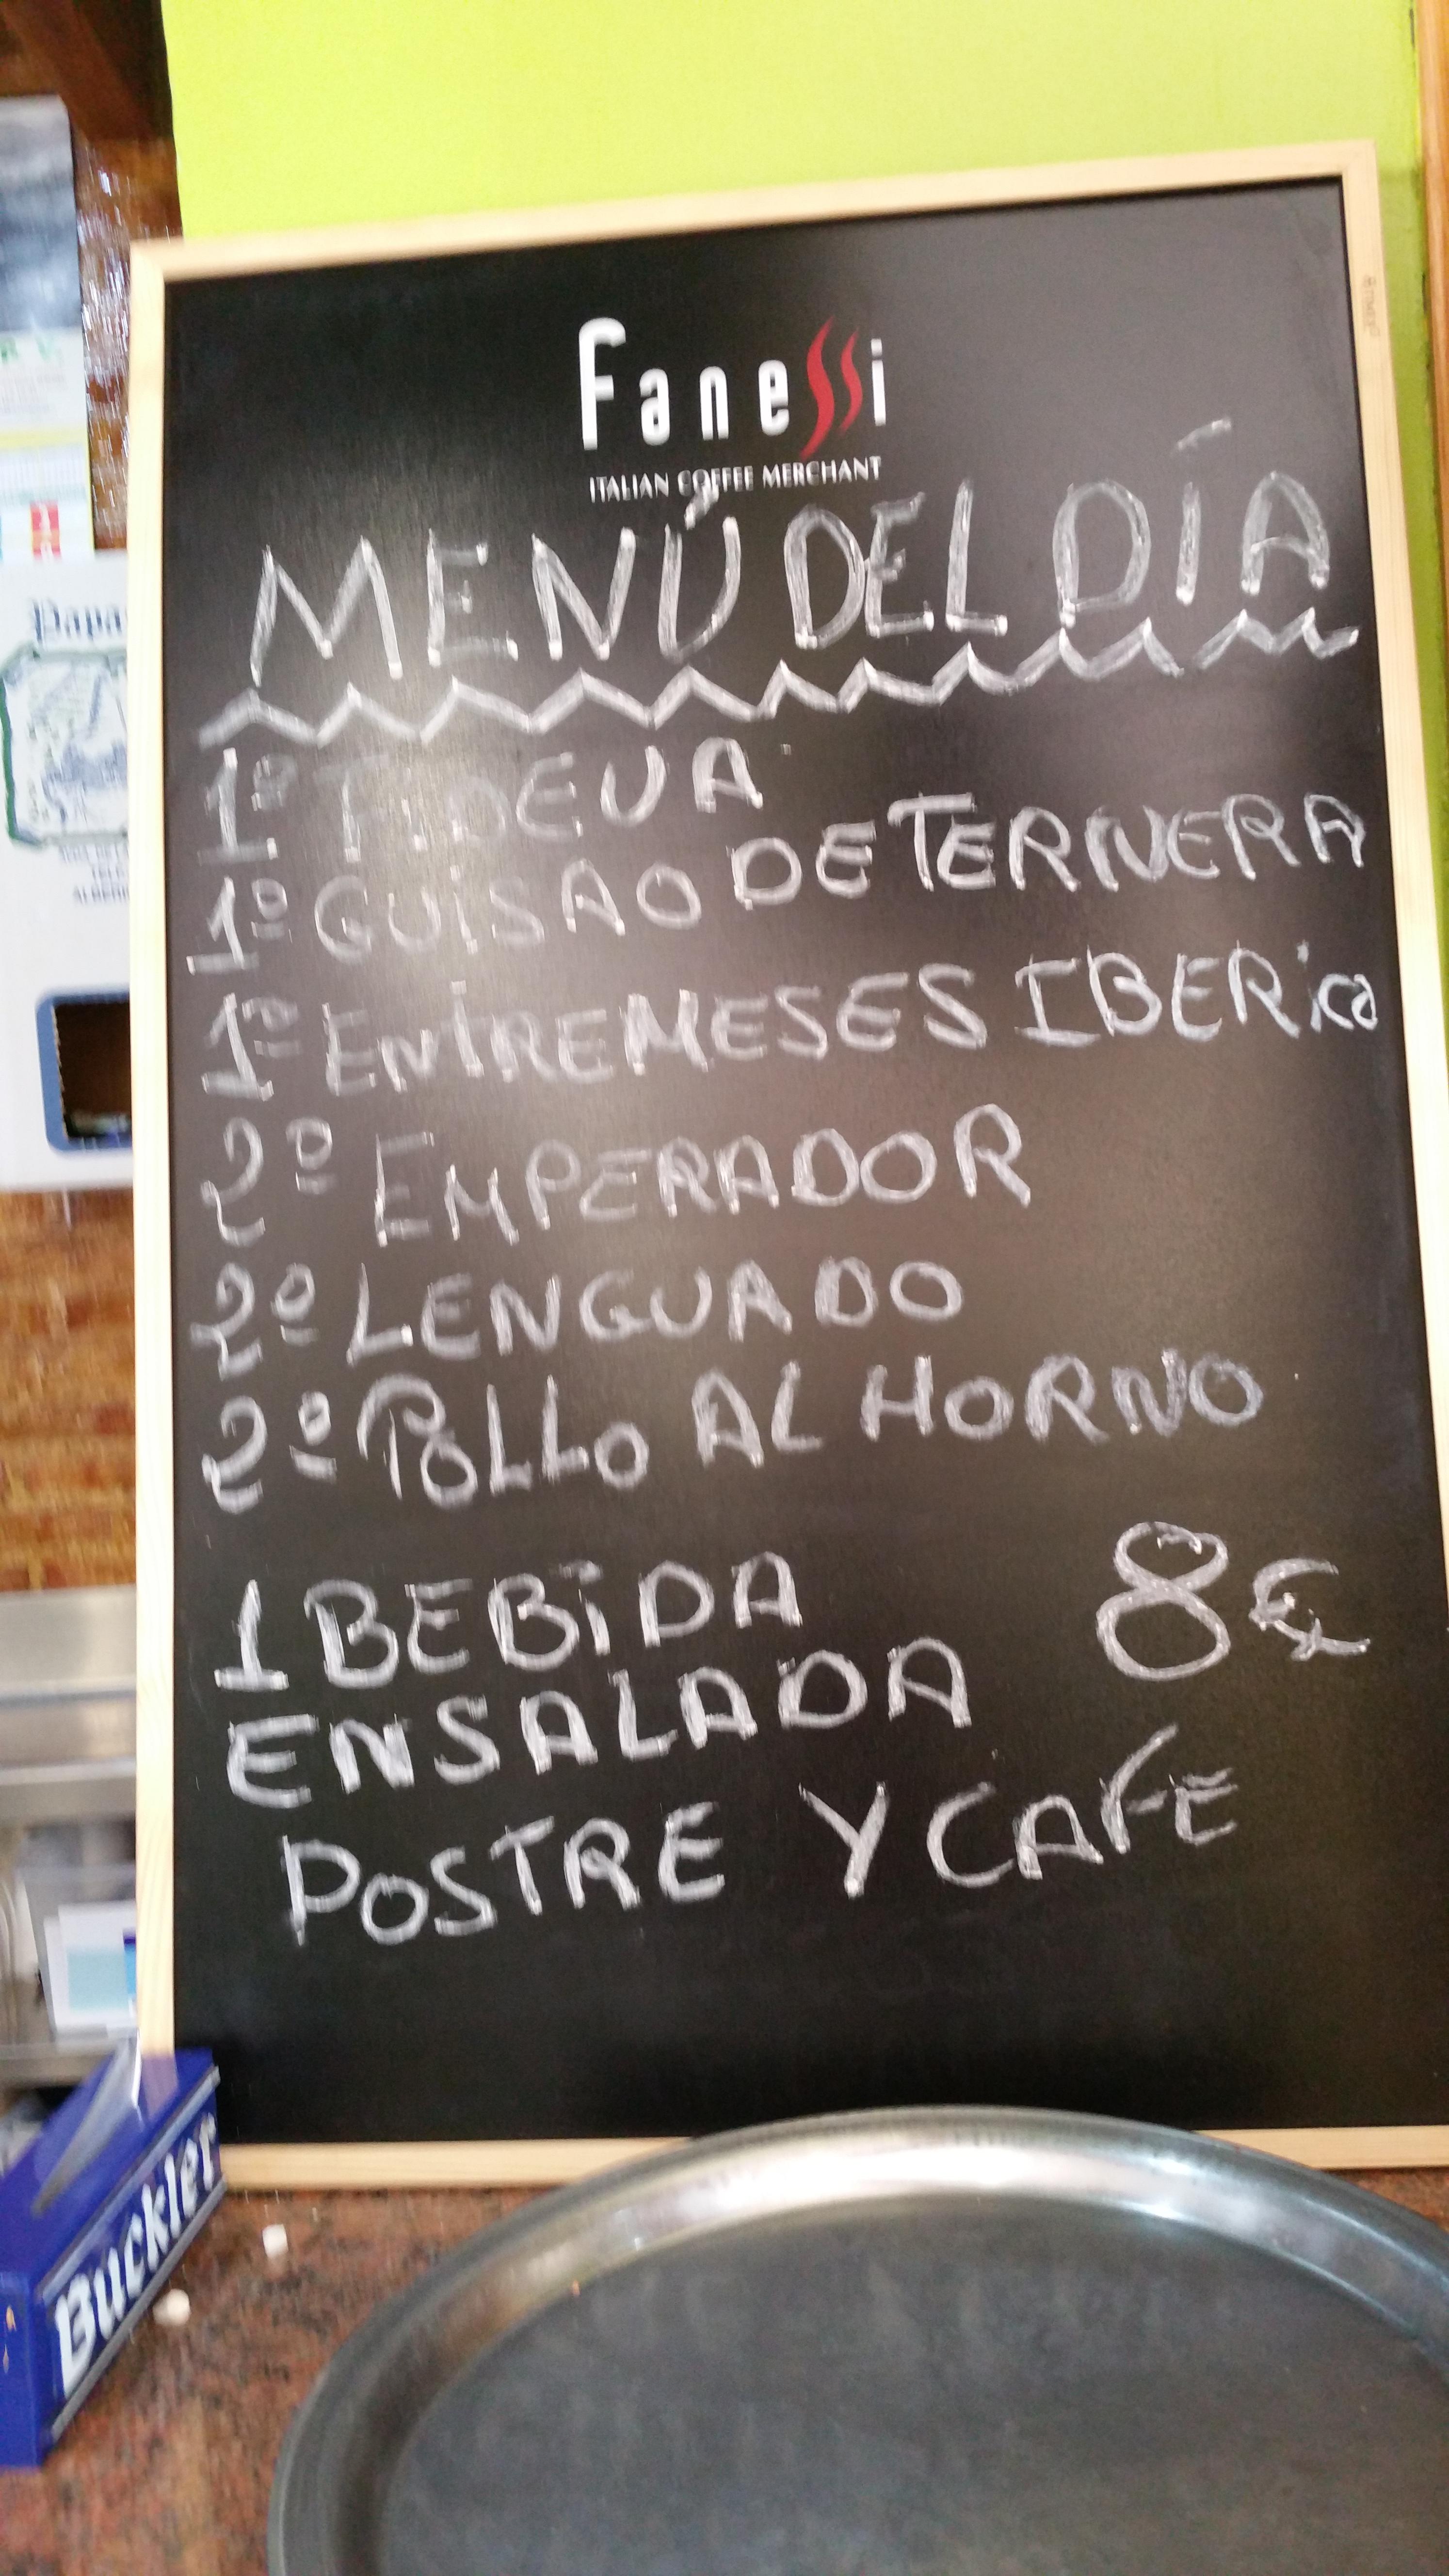 Fanessi
ITALIAN COFFEE MERCHANT
MENÚ DEL DÍA
1º FIDEUA
1º GUISAO DE TERNERA
1º ENTREMESES IBERico
2º EMPERADOR
2º LENGUADO
2º POLLO AL HORNO
1 BEBIDA 8€
ENSALADA
POSTRE Y CAFE
Buckler
Papa